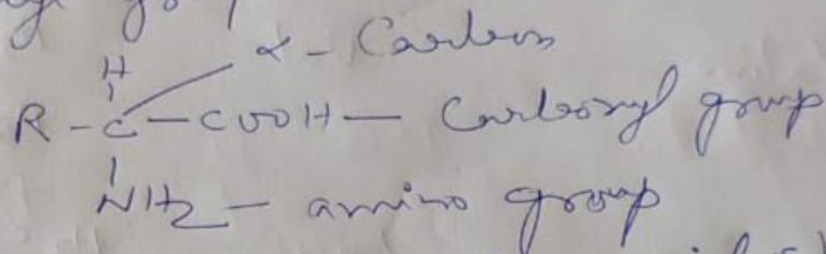 α - Carbon
H
R - C - COOH - Carboxyl group
NH2 - amino group